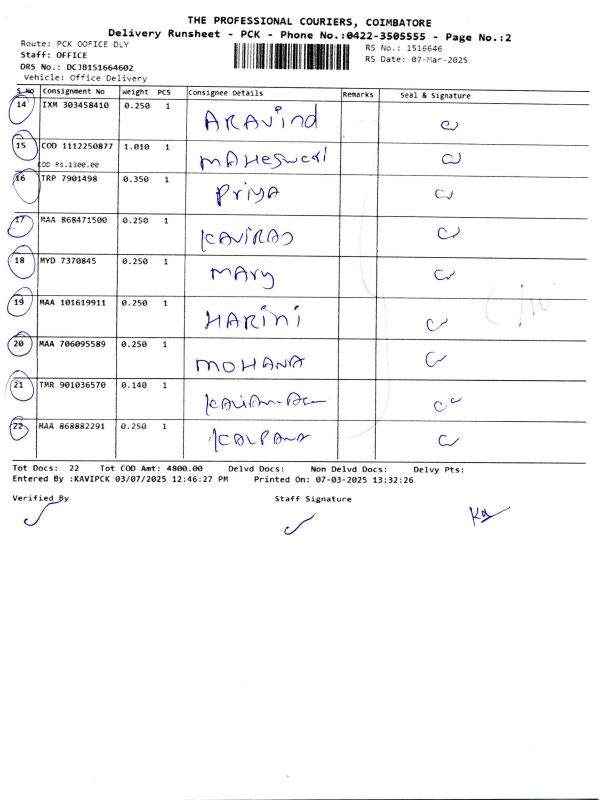 THE PROFESSIONAL COURIERS, COIMBATORE
Delivery Runsheet - PCK - Phone No.:0422-3505555 - Page No.:2
Route: PCK OOFICE DLY
RS No.: 1516646
Staff: OFFICE
RS Date: 07-Mar-2025
DRS No.: DCJB151664602
Vehicle: Office Delivery
S No Consignment No Weight PCS Consignee Details Remarks Seal & Signature
14 IXM 303458410 0.250 1 ARAVind
15 COD 1112250877 1.010 1 MAHESWARI
COD RS.1300.00
16 TRP 7901498 0.350 1 Priya
17 MAA 868471500 0.250 1 KAVIRAJ
18 MYD 7370845 0.250 1 MARY
19 MAA 101619911 0.250 1 HARINI
20 MAA 706095589 0.250 1 MOHANA
21 TMR 901036570 0.140 1
22 MAA 868882291 0.250 1 KALPANA
Tot Docs: 22 Tot COD Amt: 4800.00 Delvd Docs: Non Delvd Docs: Delvy Pts:
Entered By :KAVIPCK 03/07/2025 12:46:27 PM Printed On: 07-03-2025 13:32:26
Verified By Staff Signature